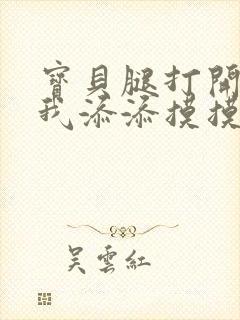 寶貝腿打開
我添添摸摸
吴雲紅